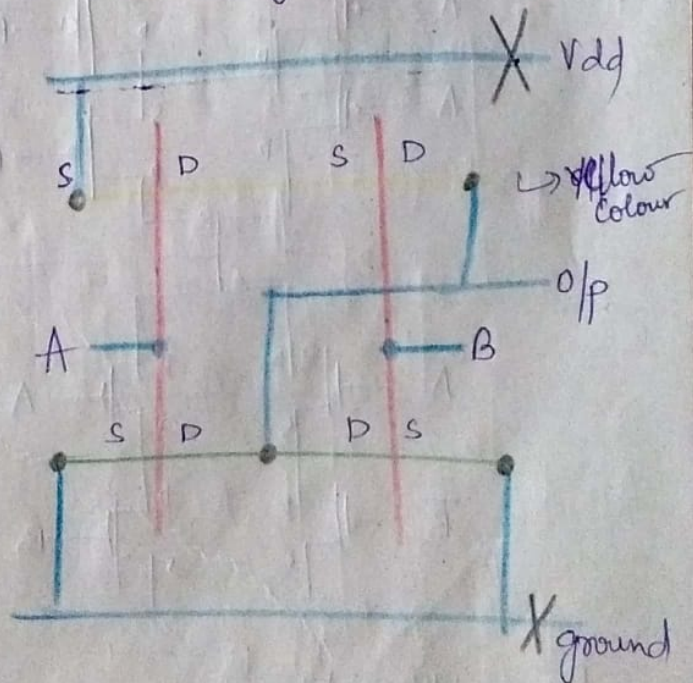 Vdd
S D S D
yellow
colour
O/p
A B
S D D S
ground